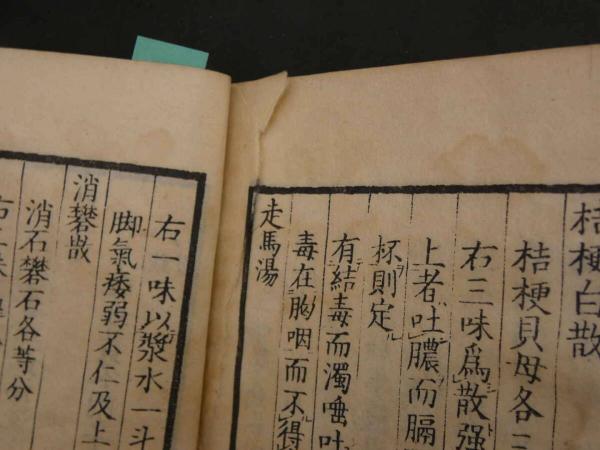 桔梗白散
桔梗貝母各三
右三味爲散强
上者吐膿而膈
杯則定
有結毒而濁唾吐
毒在胸咽而不得
走馬湯
右一味以漿水一斗
脚氣痿弱不仁及上
消礬散
消石礬石各等分
右二味